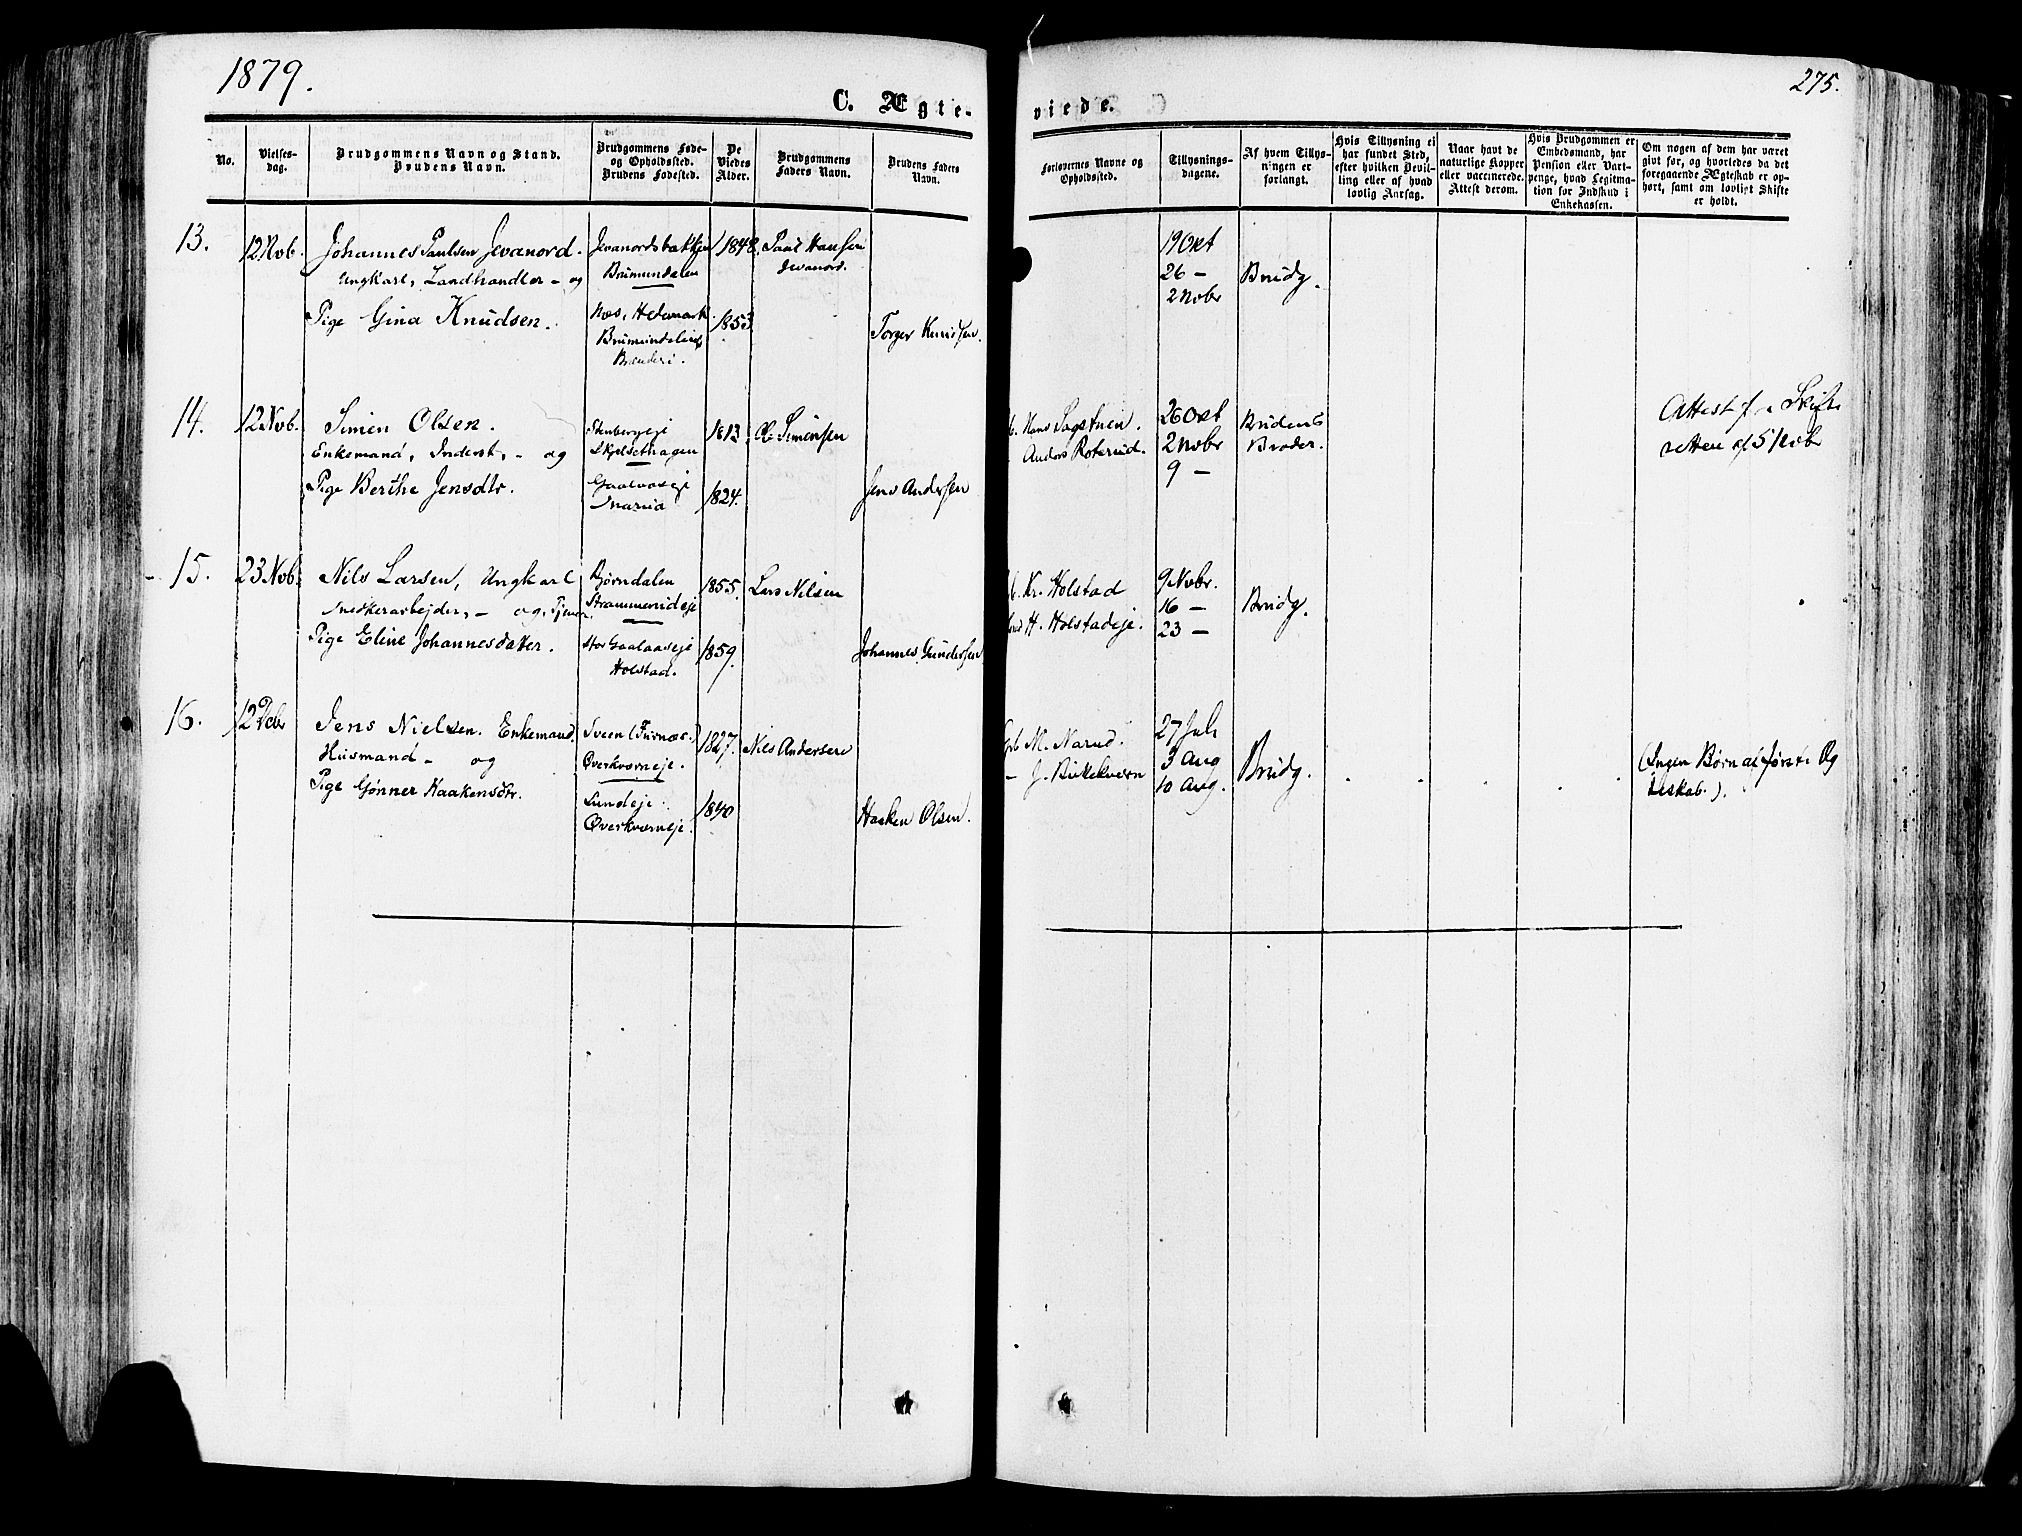 1879.
275.
C. Ægte-
viede.
No.
Vielses-
dag.
Brudgommens Navn og Stand.
Brudens Navn.
Brudgommens Føde-
og Opholdssted.
Brudens Fødested.
De
Viedes
Alder.
Brudgommens
Faders Navn.
Brudens Faders
Navn.
Forlovernes Navne og
Opholdssted.
Tillysnings-
dagene.
Af hvem Tillys-
ningen er
forlangt.
Hvis Tillysning ei
har fundet Sted,
efter hvilken Bevil-
ling eller af hvad
lovlig Aarsag.
Naar havt de
naturlige Kopper
eller vaccinerede.
Attest derom.
Hvis Brudgommen er
Embedsmand, har
Pension eller Vart-
penge, hvad Legitma-
tion for Indskud i
Enkekassen.
Om nogen af dem har været
givt før, og hvorledes da det
foregaaende Ægteskab er op-
hørt, samt om lovligt Skifte
er holdt.
13.
12 Nob.
Johannes Paulsen Jevanord.
Ungkarl, Landhandler - og
Pige Gina Knudsen.
Jevanordsbakken
Brumundalen
Næs, Hedemark.
Brumundalens
Brænderi.
1848.
1853
Paul Hansen
Jevanord.
Torger Knudsen.
19 Okt
26 -
2 Nobr
Brudg.
14.
12 Nob.
Simen Olsen.
Enkemand, Inderst, - og
Pige Berthe Jensdtr.
Stenbergeje
Skjelsethagen
Gaalaaseje
1813
1824.
Ole Simensen
Jens Andersen
Hans Sagstuen.
Anders Roterud.
26 Okt
2 Nobr
9 -
Brudens
Broder.
Attest f. Skifte
retten af 5 Nobr
15.
23 Nob.
Nils Larsen, Ungkarl
Snedkerarbejder, - og, Tjener
Pige Eline Johannesdatter.
Bjørndalen
Strammerudeje
Stor Gaalaaseje
Holstad.
1855.
1859.
Lars Nilsen
Johannes Gundersen
Kr. Holstad
H. Holstadeje.
9 Nobr.
16 -
23 -
Brudg.
16.
12 Debr
Jens Nielsen. Enkemand.
Husmand - og
Pige Gønner Haakensdtr.
Sveen (Furnæs.)
Øverkværneje.
Lundeje.
Øverkværneje.
1827.
1840
Nils Andersen
Haaken Olsen.
Grb M. Narud.
- J. Bækkekværn
27 Juli
3 Aug
10 Aug.
Brudg.
(Ingen Børn af første Æg
teskab.).